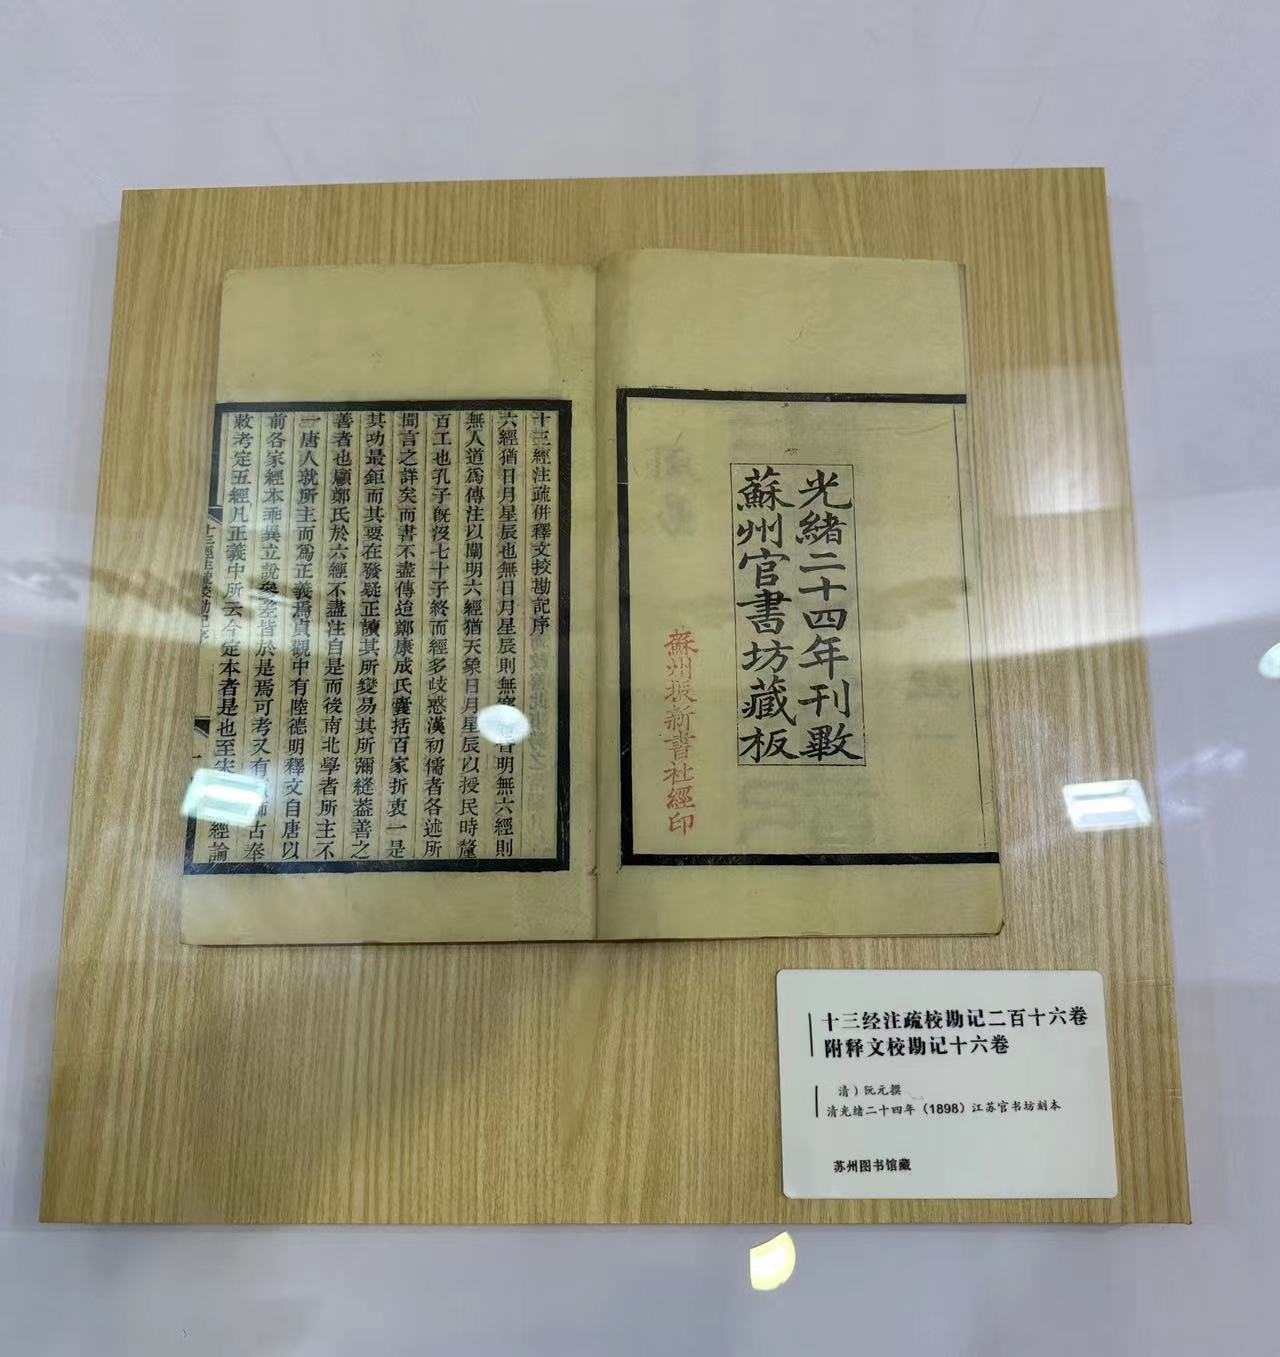 光緒二十四年刊數
蘇州官書坊藏板
蘇州振新書社經印
十三經注疏併釋文挍勘記序
六經猶日月星辰也無日月星辰則無寒 昏明無六經則
無人道爲傳注以闡明六經猶天象日月星辰以授民時釐
百工也孔子旣沒七十子終而經多歧惑漢初儒者各述所
聞言之詳矣而書不盡傳迨鄭康成氏囊括百家折衷一是
其功最鉅而其要在發疑正讀其所變易其所彌縫葢善之
善者也顧鄭氏於六經不盡注自是而後南北學者所主不
一唐人就所主而爲正義焉貞觀中有陸德明釋文自唐以
前各家經本乖異立說矣差皆於是焉可考又有 師古奉
敕考定五經凡正義中所云今定本者是也至宋 經論
十三經注疏挍勘記序
十三经注疏校勘记二百十六卷
附释文校勘记十六卷
清）阮元撰
清光绪二十四年（1898）江苏官书坊刻本
苏州图书馆藏